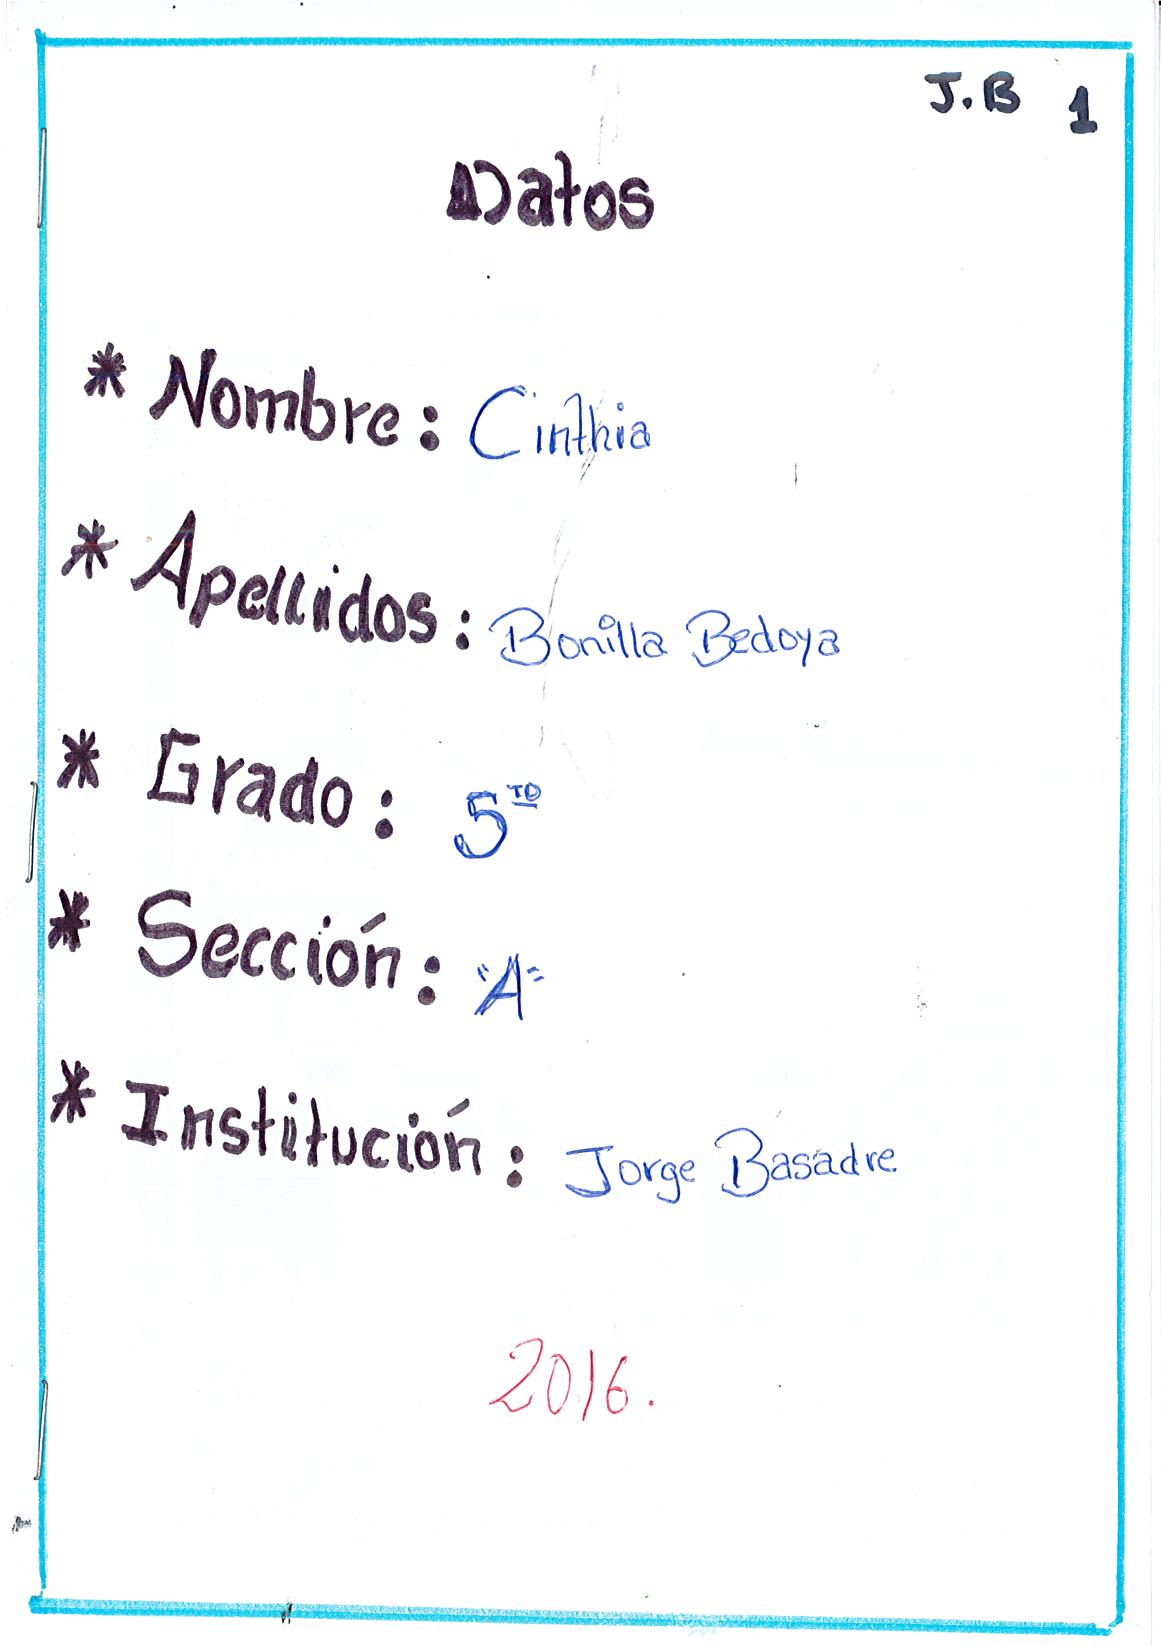 J.B 1
Datos
* Nombre: Cinthia
* Apellidos: Bonilla Bedoya
* Grado: 5TO
* Sección: "A"
* Institución: Jorge Basadre
2016.